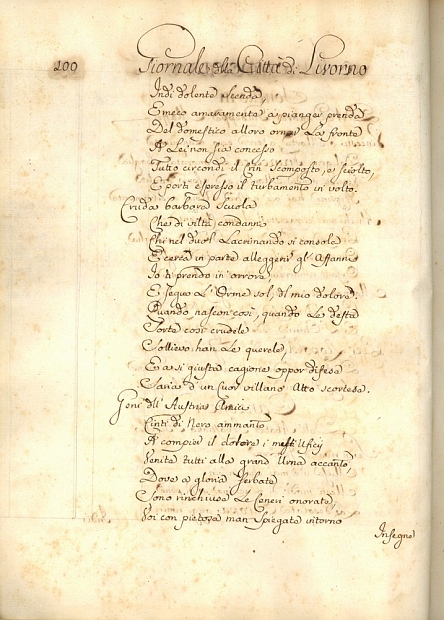 200
Giornale della Città di Livorno
Indi dolente scenda,
E meco amaramente a pianger prenda
Del domestico alloro ornar la fronte
A Lei non sia concesso
Tutto circondi il Crin scomposto, e sciolto
E porti espresso il turbamento in volto.
Cruda barbara scuola
Che di viltà condanni
Chi nel duol Lacrimando si consola
E cerca in parte alleggerir gl' Affanni
Io ti prendo in orrore
E sequo L'Orme sol, del mio dolore.
Quando nascon così, quando Le desta
Sorte così crudele
Sollievo han Le querele,
E a sì giusta cagione oppor difesa
Saria d'un Cuor villano Atto scortese.
Geni dell' Austria Amici
Cinti di Nero ammanto
A compier il dolore i mesti Ufizj
Venite tutti alla grand Urna accanto,
Dove a gloria serbate
Sono rinchiuse Le Ceneri onorate,
Poi con pietosa man spiegate intorno
Insegne